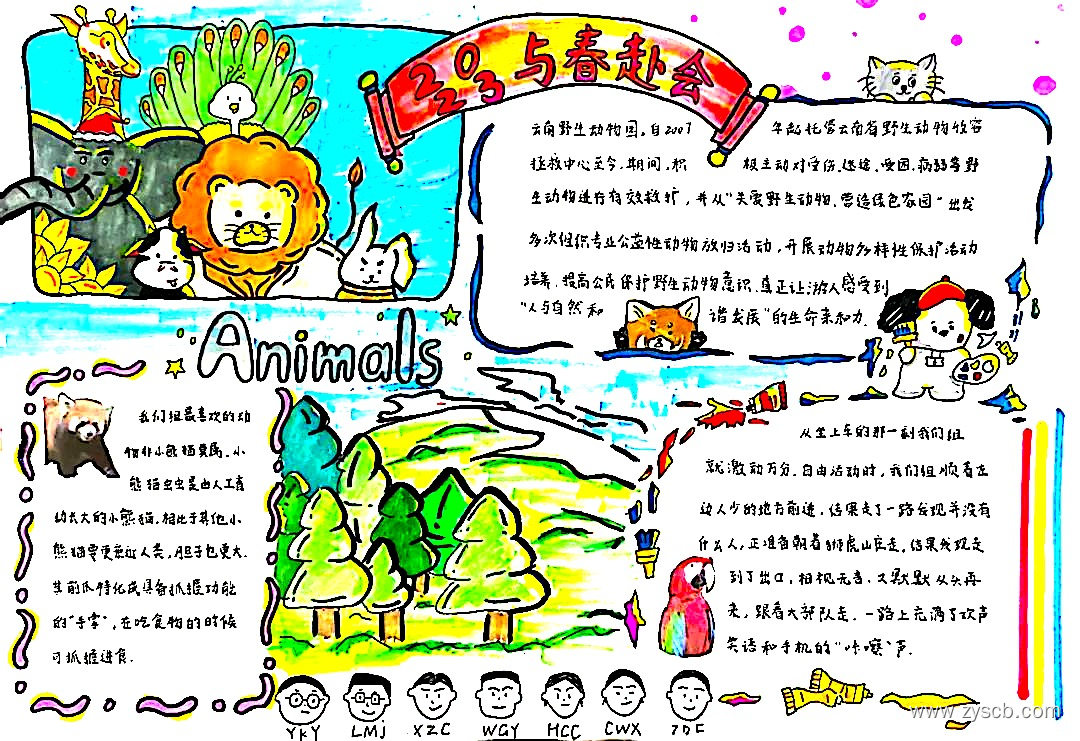 2023与春赴会
云南野生动物园,自2007年起托管云南省野生动物收容
拯救中心至今,期间,积极主动对受伤、迷途、受困、病弱等野
生动物进行有效救护,并从"关爱野生动物,营造绿色家园"出发
多次组织专业公益性动物放归活动,开展动物多样性保护活动
培养、提高公民保护野生动物意识,真正让游人感受到
"人与自然和谐发展"的生命亲和力.
Animals
我们组最喜欢的动
物非小熊猫莫属.小
熊猫虫虫是由人工育
幼长大的小熊猫,相比于其他小
熊猫要更亲近人类,胆子也更大.
其前爪特化成具备抓握功能
的"手掌",在吃食物的时候
可抓握进食.
从坐上车的那一刻我们组
就激动万分.自由活动时,我们组顺着左
边人少的地方前进,结果走了一路发现并没有
什么人,正准备朝着狮虎山庄走,结果发现走
到了出口,相视无言.又默默从头再
来,跟着大部队走.一路上充满了欢声
笑语和手机的"咔嚓"声.
YKY LMJ XZC WGY HCC CWX
www.zyscb.com